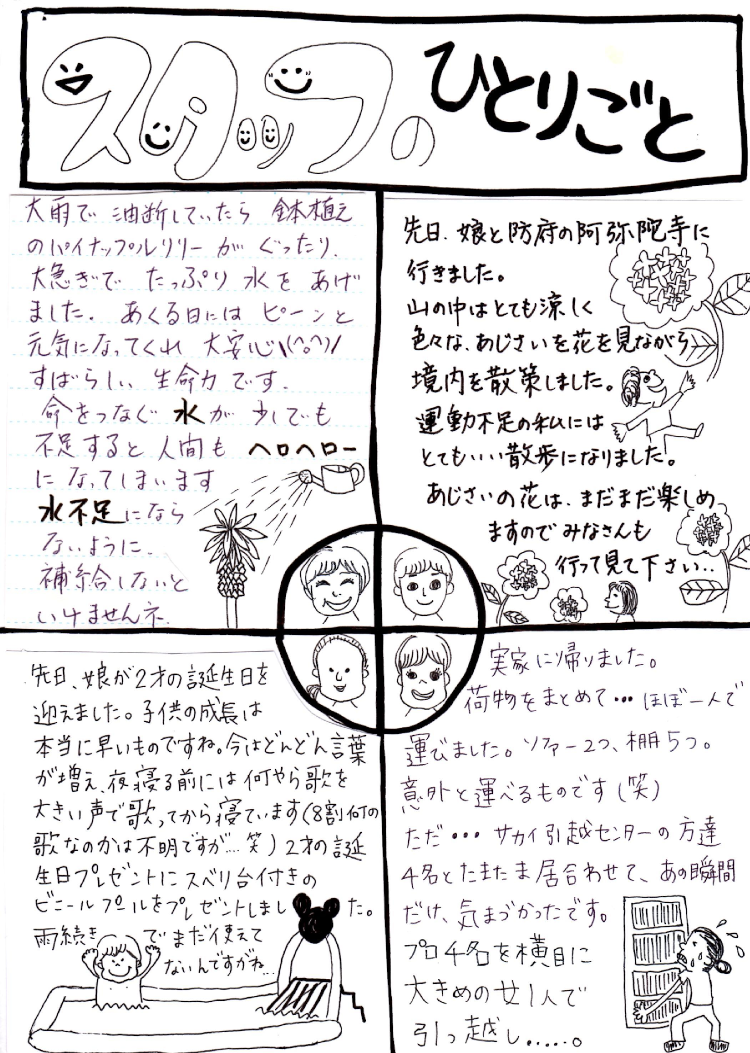 スタッフの ひとりごと
大雨で 油断していたら 鉢植え
のパイナップルリリーが ぐったり、
大急ぎで たっぷり 水を あげ
ました。 あくる日には ピーンと
元気になってくれ 大安心\(^o^)/
すばらしい 生命力です。
命をつなぐ 水が 少しでも
不足すると 人間も ヘロヘロー
になってしまいます
水不足になら
ないように、
補給しないと
いけませんネ。
先日、娘と防府の阿弥陀寺に
行きました。
山の中はとても涼しく
色々な、あじさいを花を見ながら
境内を散策しました。
運動不足の私には
とてもいい散歩になりました。
あじさいの花は、まだまだ楽しめ
ますのでみなさんも
行って見て下さい..
先日、娘が2才の誕生日を
迎えました。子供の成長は
本当に早いものですね。今はどんどん言葉
が増え、夜寝る前には何やら歌を
大きい声で歌ってから寝ています(8割何の
歌なのかは不明ですが…笑)2才の誕
生日プレゼントにスベリ台付きの
ビニールプールをプレゼントしました。
雨続きでまだ使えて
ないんですがね…
実家に帰りました。
荷物をまとめて…ほぼ一人で
運びました。ソファー2つ、棚5つ。
意外と運べるものです(笑)
ただ…サカイ引越センターの方達
4名とたまたま居合わせて、あの瞬間
だけ、気まづかったです。
プロ4名を横目に
大きめの女1人で
引っ越し……。